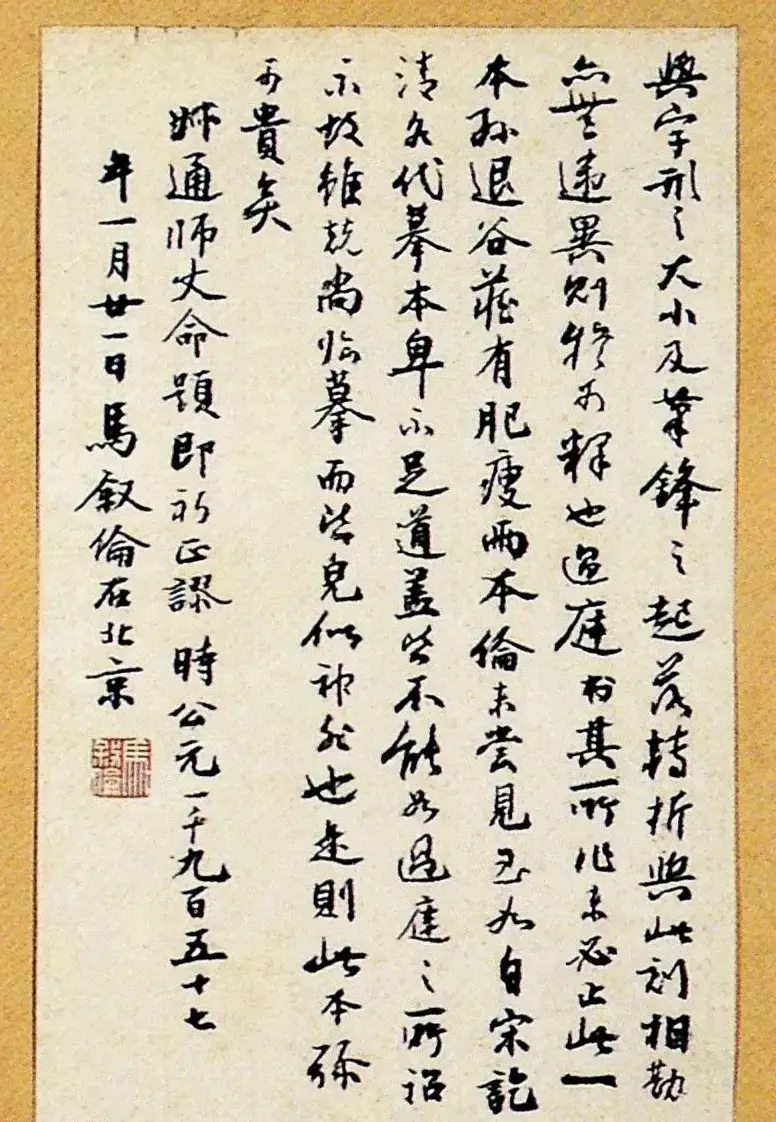 與字形之大小及筆鋒之起落轉折與此刻相勘
亦無違異則可釋也過庭書其所作未必止此一
本孫退谷藏有肥瘦兩本倫未嘗見至如自宋訖
清各代摹本卑不足道蓋皆不能如過庭之所詔
示故雖競尚臨摹而皆皃似神非也是則此本彌
可貴矣
叔通師丈命題即祈正謬 時公元一千九百五十七
年一月廿一日馬叙倫在北京